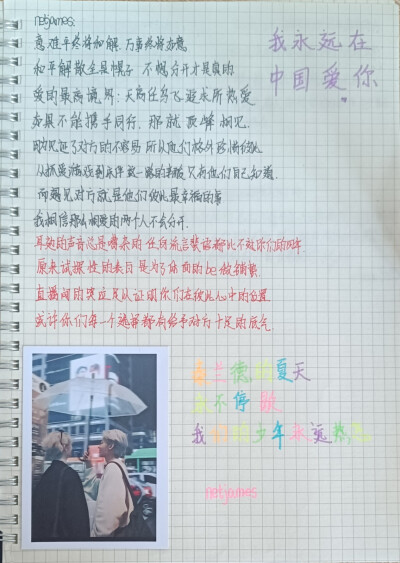 netjames:
意难平终将和解,万事终将如意
和平解散全是幌子 不想分开才是真的
爱的最高境界:天高任鸟飞 追求所热爱
如果不能携手同行,那就顶峰相见.
因为见证了对方的不容易 所以他们格外珍惜彼此
只有他们自己知道.
而遇见对方就是他们彼此最幸福的事
我相信那么相爱的两个人不会分开.
耳边的声音总是嘈杂的 任何流言装饰都比不过你们的四年.
原来试探性的表白 是为了体面的be做铺垫.
直播间的哭应足以证明你们在彼此心中的位置
或许你们每一个选择都有给予对方十足的底气.
我永远在
中国爱你
兰德的夏天
永不停歇
我们的少年永远热恋
netjames